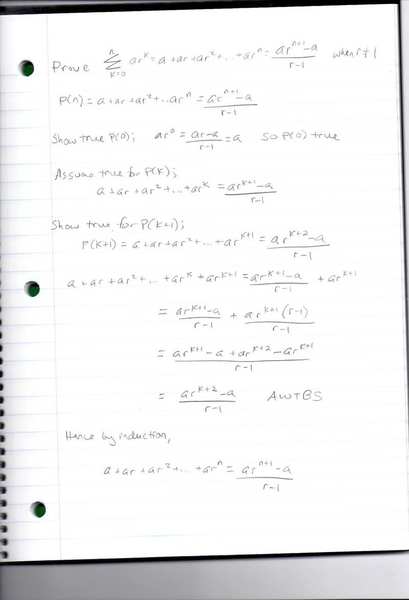 Prove n ∑ k=0 ar^k = a + ar + ar² + ... + ar^n = (ar^(n+1) - a)/(r-1) when r≠1
P(n) = a + ar + ar² + .. ar^n = (ar^(n+1) - a)/(r-1)
Show true P(0); ar⁰ = (ar-a)/(r-1) = a so P(0) true
Assume true for P(k);
a + ar + ar² + ... + ar^k = (ar^(k+1) - a)/(r-1)
Show true for P(k+1);
P(k+1) = a + ar + ar² + ... + ar^(k+1) = (ar^(k+2) - a)/(r-1)
a + ar + ar² + ... + ar^k + ar^(k+1) = (ar^(k+1) - a)/(r-1) + ar^(k+1)
= (ar^(k+1) - a)/(r-1) + (ar^(k+1)(r-1))/(r-1)
= (ar^(k+1) - a + ar^(k+2) - ar^(k+1))/(r-1)
= (ar^(k+2) - a)/(r-1) AWTBS
Hence by induction,
a + ar + ar² + ... + ar^n = (ar^(n+1) - a)/(r-1)